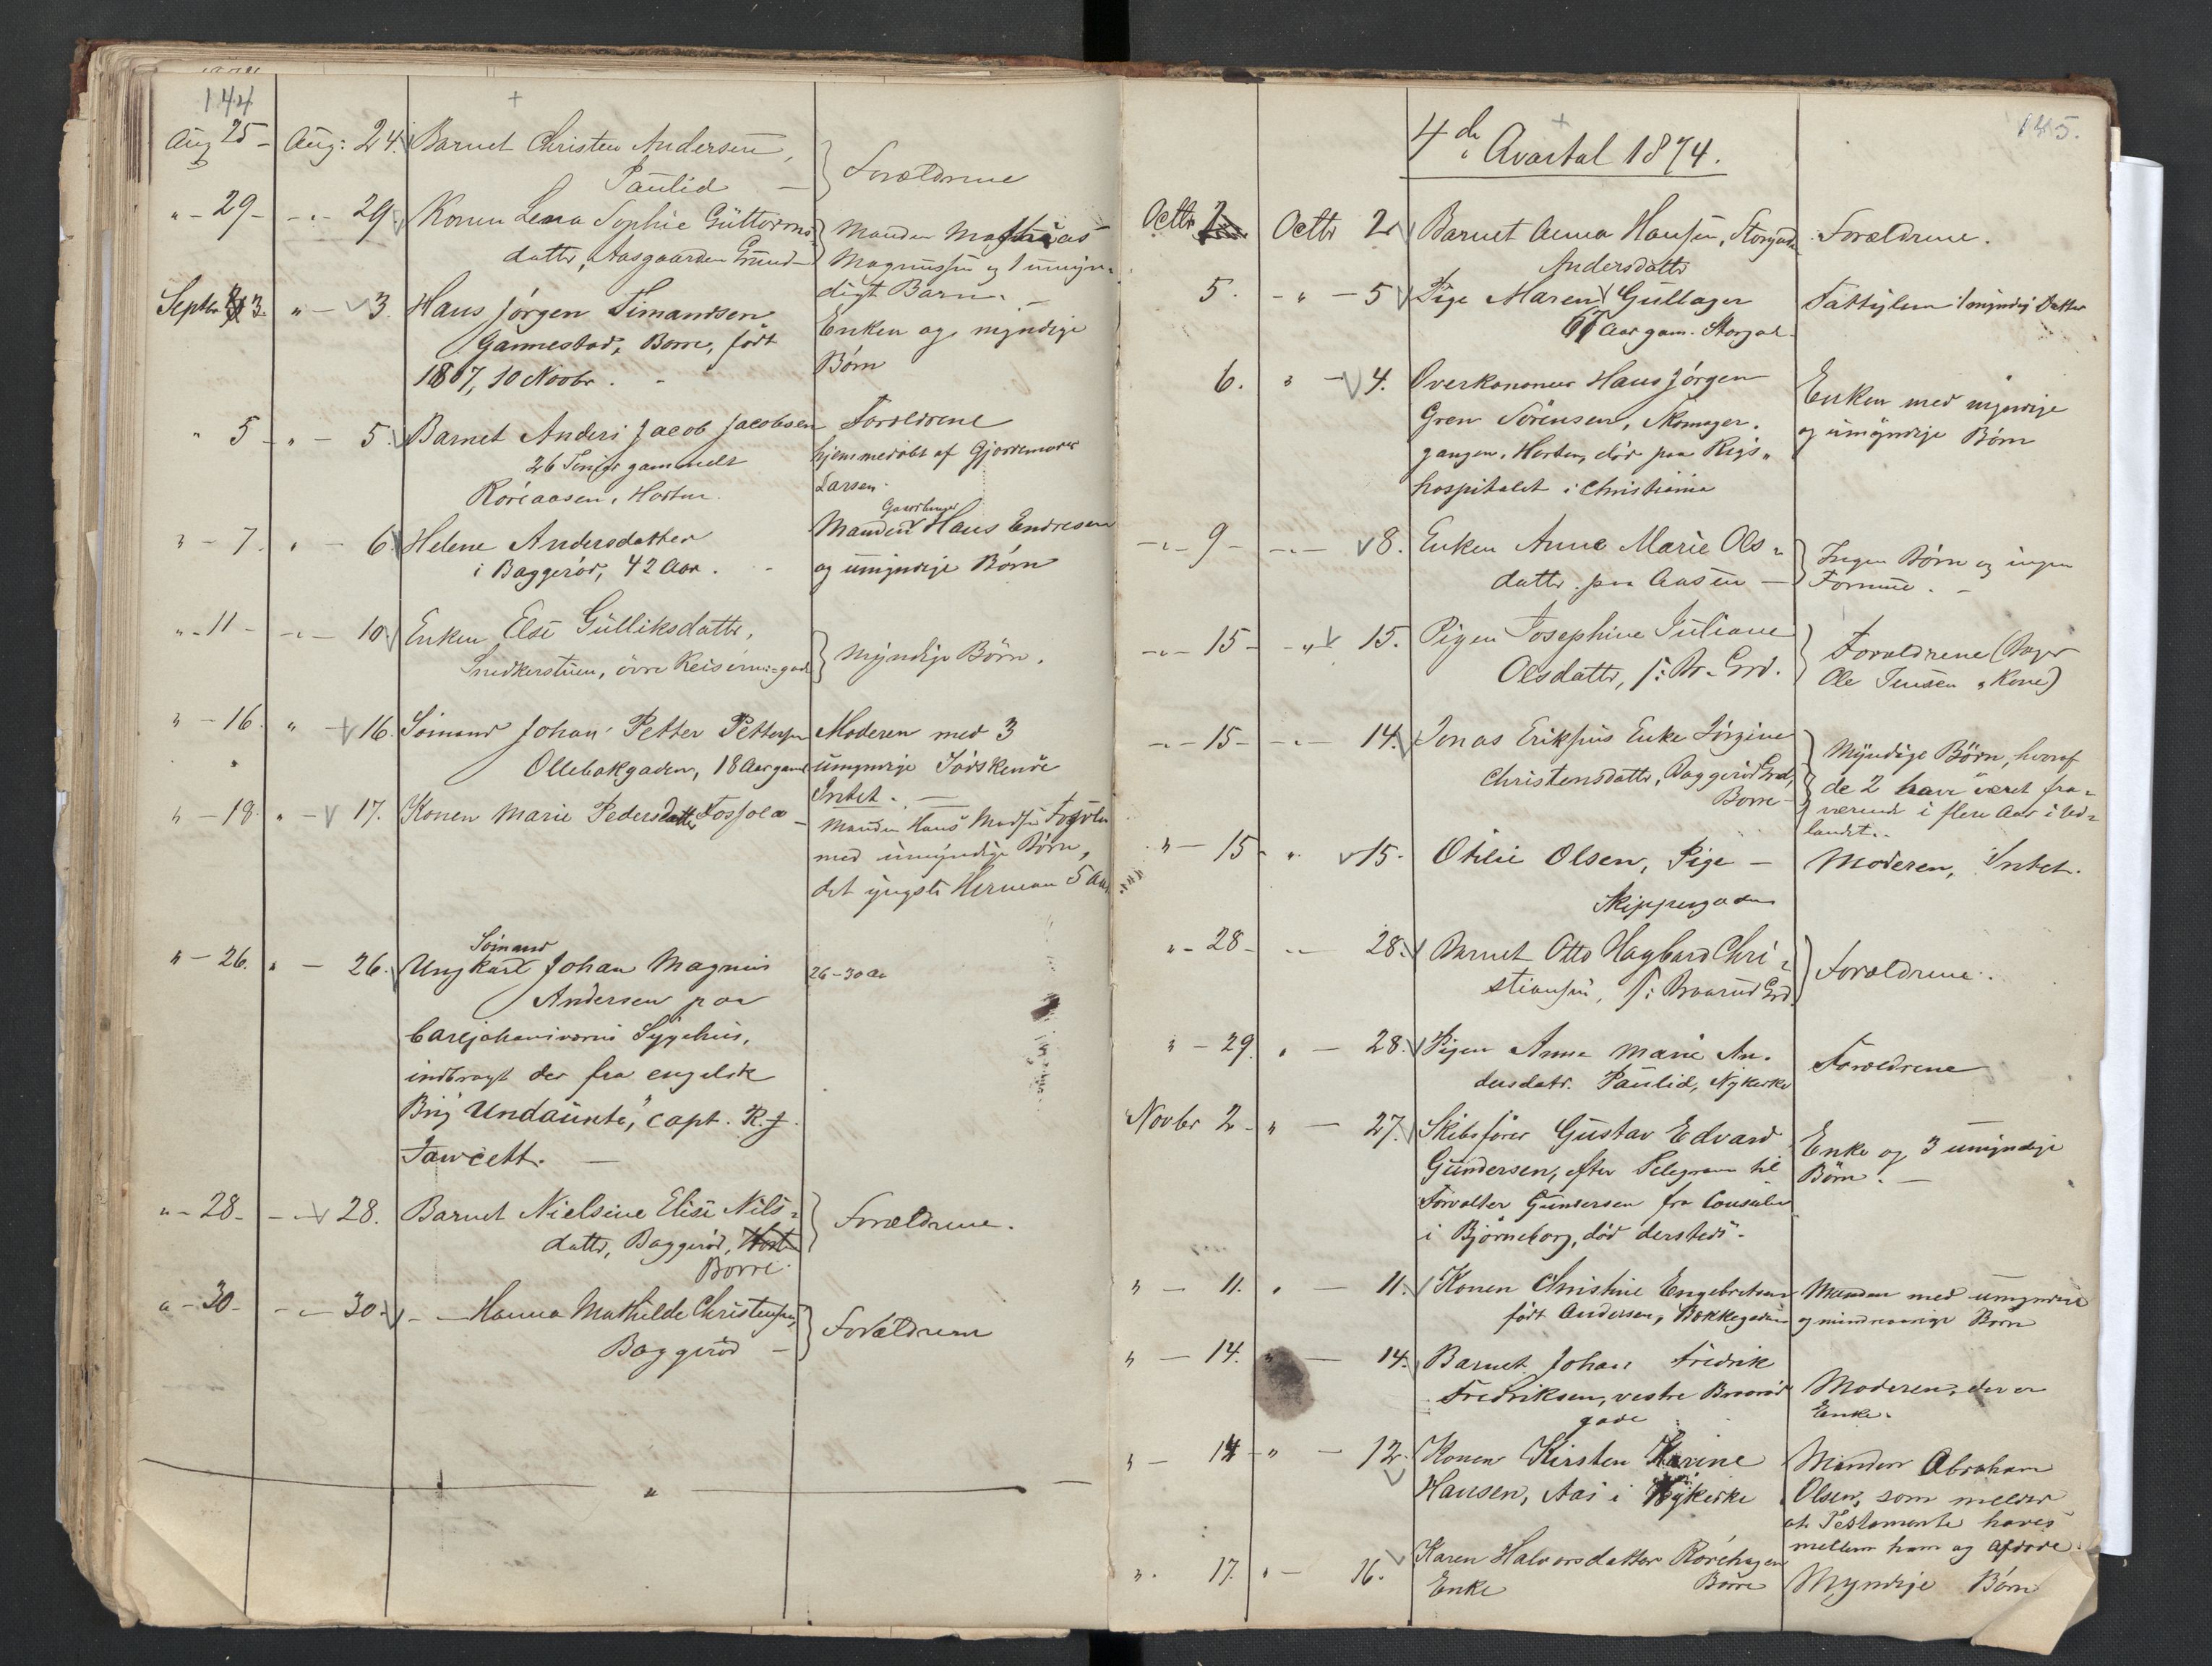 144
Aug 25 - Aug: 24. Barnet Christen Andersen,
Paulid — Forældrene
" - 29 - - " - 29. Konen Lena Sophie Guttorms-
datter, Aasgaarden Grund - Manden Mathias
Magnussen og 1 umyn-
digt Barn. -
Septbr 3. " - 3. Hans Jørgen Simandsen
Gannestad, Borre, født
1807, 10 Novbr. - Enken og myndige
Børn
" 5 - " - 5. Barnet Anders Jacob Jacobsen
26 Timer gammelt
Røreaasen, Horten. Forældrene
hjemmedøbt af Gjordemoder
Larsen.
" - 7. " - 6. Helene Andersdatter
i Baggerød, 42 Aar. - Gaardbruger
Manden Hans Endresen
og umyndige Børn
" - 11 - - " - 10. Enken Else Gulliksdatter,
Snedkerstuen, övre Keiserensgade Myndige Børn.
" - 16. " - 16. Sömand Johan Petter Pettersen
Ollebakgaden, 18 Aar gaml Moderen med 3
umyndige Södskende
Intet. —
" - 18. " - 17. Konen Marie Pedersdatter Fossola - Manden Hans Madsen
med umyndige Børn,
det yngste Herman 5 Aar
" - 26. " - 26. Sömand
Ungkarl Johan Magnus
Andersen paa
Carljohansværns Sygehus,
indbragt der fra engelsk
Brig "Undaunte", capt. R. J.
Fawcett. — 26-30 Aa
" - 28 - - " - 28. Barnet Nielsine Elise Nils-
datter, Baggerød,
Borre. Forældrene.
" - 30 - - " - 30. - — Hanna Mathilde Christensen,
Baggerød — Forældrene
— " —
145.
4de Qvartal 1874.
Octbr 2 Octbr 2 Barnet Anna Hansen, Storgade Forældrene.
5. - " - 5 Andersdatter
Pige Maren Gullager
67 Aar gam. Storgad. Fattiglem 1 myndig Datter
6. " - 4. Overkanoneer Hans Jørgen
Gren Sörensen, Skomager-
gangen, Horten, död paa Rigs-
hospitalet i Christiania Enken med myndige
og umyndige Børn
- " - 9 - - " - 8. Enken Anne Marie Ols-
datter paa Aasen — Ingen Børn og ingen
Formue. -
- " - 15 - - " 15. Pigen Josephine Juliane
Olsdatter, Forældrene (Bager
Ole Jensen & Kone)
- " - 15 - - " - 14. Jonas Eriksens Enke Jörgine
Christensdatter, Baggerød Grd,
Borre - Myndige Børn, hvoraf
de 2 have været fra-
værende i flere Aar i Ud-
landet. -
" - 15 - " 15. Otilie Olsen, Pige —
Skippergaden Moderen, Intet.
" - 28 - - " - 28. Barnet Otto Hagbard Chri-
stiansen, Braarud Grd. Forældrene.
" - 29. " - 28. Pigen Anne Marie An-
dersdatr. Paulid, Nykirke Forældrene
Novbr 2 - " - 27. Skibsfører Gustav Edvard
Gundersen, efter Telegram til
Forvalter Gundersen fra Consulen
i Björneborg, död dersteds. Enke og 3 umyndige
Børn. —
" - 11. " - 11. Konen Christine Engebretsen
født Andersen, Bakkegaden Manden med umyndige
og mindreaarige Børn
" - 14. " - 14. Barnet Johan Fredrik
Fredriksen, vestre Braarud
gade Moderen, der er
Enke.
" - 14 - " - 12. Konen Kirsten Karine
Hansen, Aas i Nykirke Manden Abraham
Olsen, som melder
at Testamente haves
mellem ham og Afdøde.
" - 17. " - 16. Karen Halvorsdatter Rørehagen
Enke Borre Myndige Børn